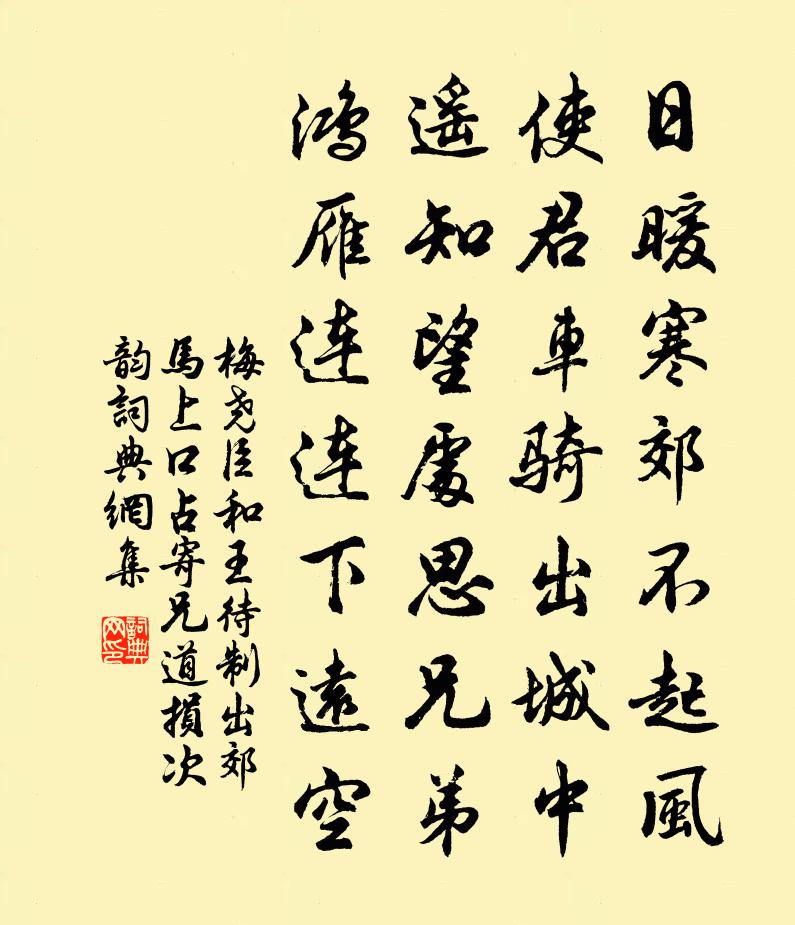 日暖寒郊不起風
使君車騎出城中
遥知望處思兄弟
鴻雁連連下遠空
梅堯臣和王待制出郊
馬上口占寄兄道損次
韵詞典網集
詞典
网印